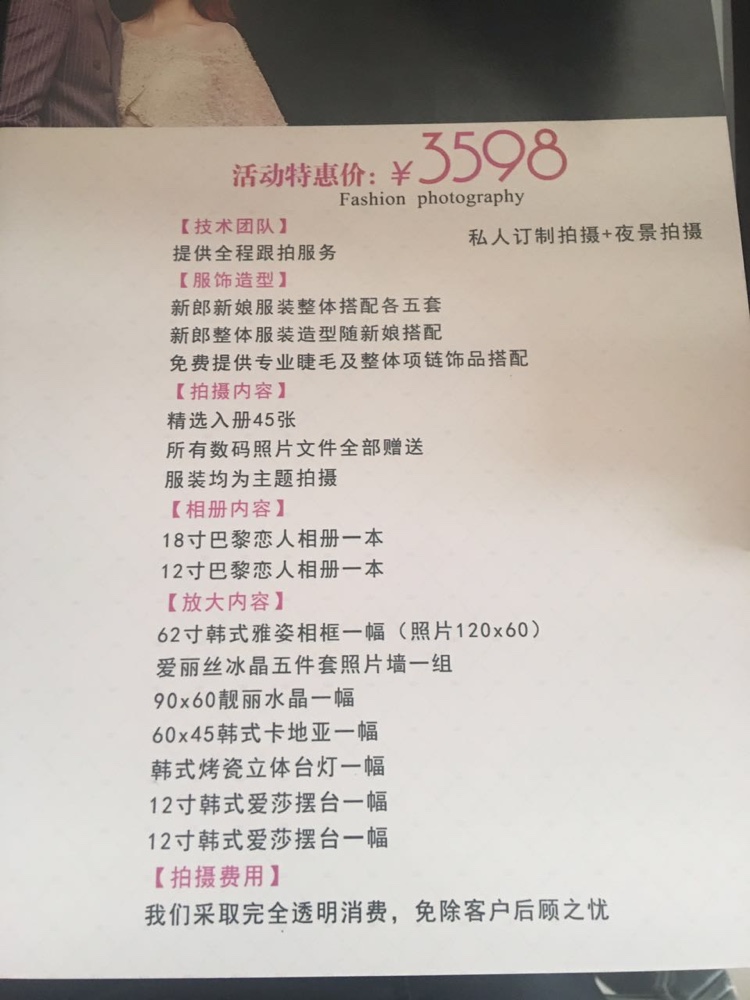 活动特惠价：￥3598
Fashion photography
私人订制拍摄+夜景拍摄
【技术团队】
提供全程跟拍服务
【服饰造型】
新郎新娘服装整体搭配各五套
新郎整体服装造型随新娘搭配
免费提供专业睫毛及整体项链饰品搭配
【拍摄内容】
精选入册45张
所有数码照片文件全部赠送
服装均为主题拍摄
【相册内容】
18寸巴黎恋人相册一本
12寸巴黎恋人相册一本
【放大内容】
62寸韩式雅姿相框一幅（照片120x60）
爱丽丝冰晶五件套照片墙一组
90x60靓丽水晶一幅
60x45韩式卡地亚一幅
韩式烤瓷立体台灯一幅
12寸韩式爱莎摆台一幅
12寸韩式爱莎摆台一幅
【拍摄费用】
我们采取完全透明消费，免除客户后顾之忧